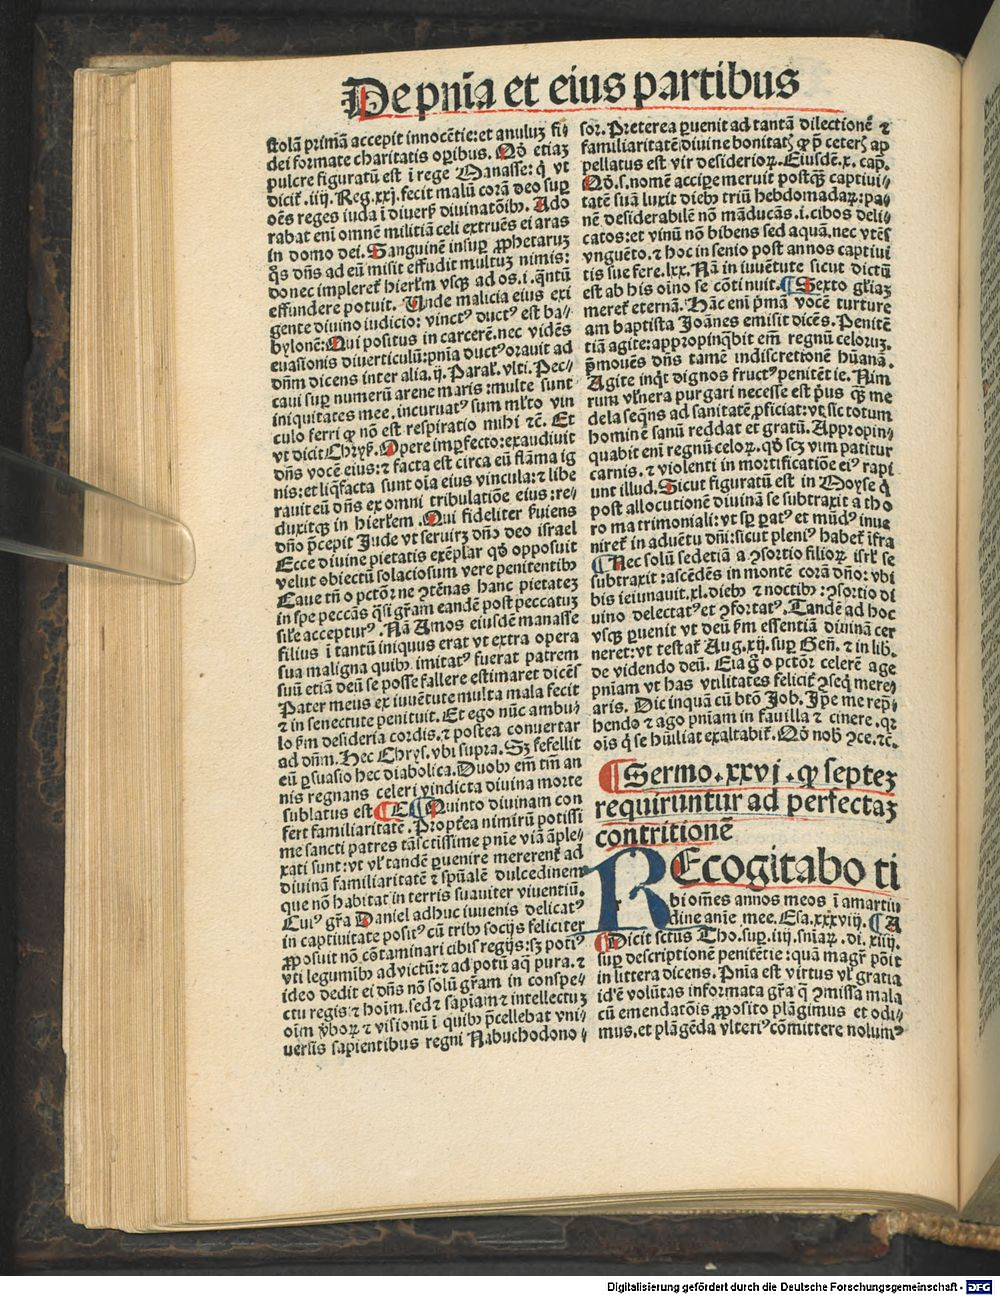 De pnia et eius partibus
stolã primã accepit innocẽtie: et anuluȝ fi⸗
dei formate charitatis oꝑibus. Qđ etiaȝ
pulcre figuratũ est ĩ rege Manasse: q̃ vt
dicit᷑ .iiij. Reg. xxj. fecit malũ corã deo suꝑ
oẽs reges iuda ĩ diuerſ diuinatõibꝰ. Ado
rabat eni omnẽ militiã celi extruẽs ei aras
in domo dei. Sanguinẽ insuꝑ ꝓphetaruȝ
q̊s dñs ad eũ misit effudit multuȝ nimis:
donec impleret᷑ hierl̃m vsqꝫ ad os .i. q̃ntũ
effundere potuit. Unde malicia eius exi
gente diuino iudicio: vinctꝰ ductꝰ est ba⸗
bylonẽ: Qui positus in carcerẽ. nec vidẽs
euasionis diuerticulũ: pnĩa ductꝰ orauit ad
dñm dicens inter alia. ij. Paral̃. vlti. Pec⸗
caui suꝑ numerũ arene maris: multe sunt
iniquitates mee. incuruatꝰ sum ml̃to vin
culo ferri ꝙ nõ est respiratio mihi ⁊c̃. Et
vt dicit Chryſ. Opere imꝑfecto: exaudiuit
dñs vocẽ eius: ⁊ facta est circa eũ flãma ig
nis: et liq̃facta sunt oĩa eius vincula: ⁊ libe
rauit eũ dñs ex omni tribulatiõe eius: re⸗
duxitqꝫ in hierl̃em. Qui fideliter ẜuiens
dño p̃cepit Jude vt seruirȝ dño deo israel
Ecce diuine pietatis exẽplar qđ opposuit
velut obiectũ solaciosum vere penitentibꝰ
Caue tñ o pctõꝛ: ne ꝯtẽnas hanc pietateȝ
in spe peccãs q̃si gr̃am eandẽ post peccatuȝ
sil̃e acceptur⁹. Nã Amos eiusdẽ manasse
filius ĩ tantũ iniquus erat vt extra opera
sua maligna quibꝰ imitatꝰ fuerat patrem
suũ etiã deũ se posse fallere estimaret dicẽs
Pater meus ex iuuẽtute multa mala fecit
⁊ in senectute penituit. Et ego nũc ambu⸗
lo ẜm desideria cordis. ⁊ postea conuertar
ad dñm. Hec Chryſ. vbi supra. Sȝ fefellit
eũ ꝑsuasio hec diabolica. Duobꝰ em̃ tm̃ an
nis regnans celeri vindicta diuina morte
sublatus est ¶ E ¶ Quinto diuinam con
fert familiaritatẽ. Propt̃ea nimirũ potissi
me sancti patres tã sctissime pnie viã ãple⸗
xati sunt: vt vl̃ tandẽ ꝑuenire mererent᷑ ad
diuinã familiaritatẽ ⁊ spũalẽ dulcedinem
que nõ habitat in terris suauiter viuentiũ.
Cuiꝰ gr̃a Daniel adhuc iuuenis delicatꝰ
in captiuitate positꝰ cũ tribꝰ socijs feliciter
ꝓposuit nõ cõtaminari cibis regijs: sȝ potiꝰ
vti legumibꝰ ad victũ: ⁊ ad potũ aq̃ pura. ⁊
ideo dedit ei dñs nõ solũ gr̃am in conspe⸗
ctu regis ⁊ hoĩm. sed ⁊ sapiam ⁊ intellectuȝ
oĩm v̾boꝝ ⁊ visionũ ĩ quibꝰ p̃cellebat vni⸗
uersis sapientibus regni Nabuchodono⸗
sor. Preterea ꝑuenit ad tantã dilectionẽ ⁊
familiaritatẽ diuine bonitatꝭ ꝙ p̃ ceterꝭ ap
pellatus est vir desiderioꝝ. Eiusdẽ .x. cap̃.
Qđ .s. nomẽ acciꝑe meruit postq̃ꝫ captiui⸗
tatẽ suã luxit diebꝰ triũ hebdomadaꝝ: pa⸗
nẽ desiderabilẽ nõ mãducãs .i. cibos deli⸗
catos: et vinũ nõ bibens sed aquã. nec vtẽs
vnguẽto. ⁊ hoc in senio post annos captiui
tis sue fere .lxx. Nã in iuuẽtute sicut dictũ
est ab his oĩno se cõtinuit. ¶ Sexto gl̃iaȝ
meret᷑ eternã. Hãc eni p̃mã vocẽ turture
am baptista Joãnes emisit dicẽs. Penitẽ
tiã agite: appropinq̃bit em̃ regnũ celoruȝ.
p̃mouẽs dñs tamẽ indiscretionẽ hũanã.
Agite inq̃t dignos fructꝰ penitẽtie. Nim
rum vl̃nera purgari necesse est p̾us qꝫ me
dela seq̃ns ad sanitatẽ ꝓficiat: vt sic totum
hominẽ sanũ reddat et gratũ. Appropin⸗
quabit eni regnũ celoꝝ. qđ scȝ vim patitur
carnis. ⁊ violenti in mortificatiõe eiꝰ rapi
unt illud. Sicut figuratũ est in Moyse q̃
post allocutionẽ diuinã se subtraxit a tho
ro matrimoniali: vt sꝑ ꝑatꝰ et mũdꝰ inue
niret᷑ in aduẽtu dñi: sicut pleniꝰ habet᷑ ĩfra
¶ Nec solũ sedetiã a ꝯsortio filioꝝ isrl̃ se
subtraxit: ascẽdẽs in montẽ corã dño: vbi
bis ieiunauit .xl. diebꝰ ⁊ noctibꝰ: ꝯsortio di
uino delectatꝰ et ꝯfortatꝰ. Tandẽ ad hoc
vsqꝫ ꝑuenit vt deũ ẜm essentiã diuinã cer
neret: vt testat᷑ Aug. xij. suꝑ Geñ. ⁊ in lib.
de videndo deũ. Eia g̊ o pctõꝛ celerẽ age
pniam vt has vtilitates felicit᷑ ꝯseq̃ mere⸗
aris. Dic inquã cũ btõ Job. Ip̃e me rep̃⸗
hendo ⁊ ago pniam in fauilla ⁊ cinere. qꝛ
oĩs q̃ se hũiliat exaltabit᷑. Qđ nobꝭ ꝯce. ⁊c̃.
¶ Sermo .xxvj. ꝙ septeȝ
requiruntur ad perfectaȝ
contritionẽ
REcogitabo ti
bi om̃es annos meos ĩ amaritu
dine anĩe mee. Esa. xxxviij. ¶ A
¶ Dicit sctũs Tho. suꝑ .iiij. snĩaꝝ. di. xiiij.
suꝑ descriptionẽ penitẽtie: quã magr̃ põit
in littera dicens. Pnĩa est virtus vl̃ gratia
id'ẽ volũtas informata gr̃a q̃ ꝯmissa mala
cũ emendatõis ꝓposito plãgimus et odi⸗
mus. et plãgẽda vlteriꝰ cõmittere nolumꝰ
Digitalisierung gefördert durch die Deutsche Forschungsgemeinschaft - DFG